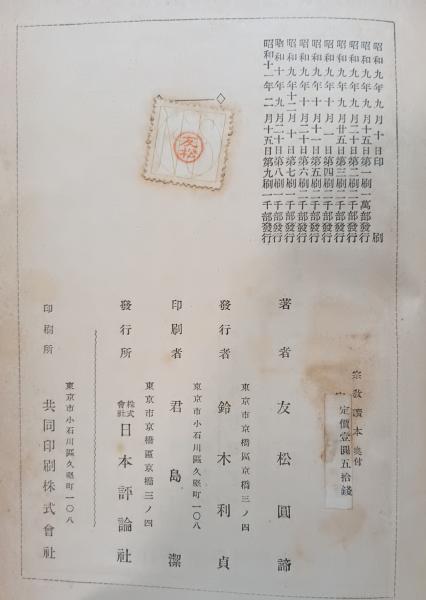 昭和九年九月十日印刷
昭和九年九月十五日第一刷一萬部發行
昭和九年九月二十日第二刷二千部發行
昭和九年九月廿五日第三刷二千部發行
昭和九年十月一日第四刷二千部發行
昭和九年十月十一日第五刷二千部發行
昭和九年十月二十日第六刷二千部發行
昭和九年十二月十日第七刷一千部發行
昭和十年九月二十日第八刷一千部發行
昭和十一年二月十五日第九刷一千部發行
友松
宗教讀本奥付
定價壹圓五拾錢
著者 友松圓諦
東京市京橋區京橋三ノ四
發行者 鈴木利貞
東京市小石川區久堅町一〇八
印刷者 君島潔
東京市京橋區京橋三ノ四
發行所 株式會社 日本評論社
東京市小石川區久堅町一〇八
印刷所 共同印刷株式會社